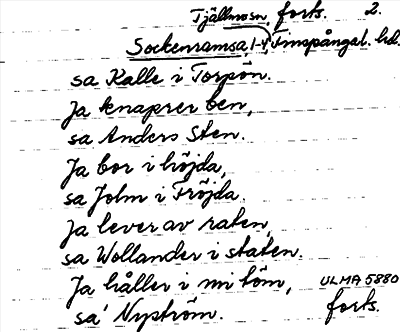 Tjällmosn, forts. 2.
Sockenramsa, 1-4, Finspångal. hd.
sa Kalle i Torpön.
Ja knaprer ben,
sa Anders Sten.
Ja bor i höjda,
sa Jolm i Fröjda.
Ja lever av raten,
sa Wollander i staten.
Ja håller i mi töm, ULMA 5880
sa' Nyström. forts.